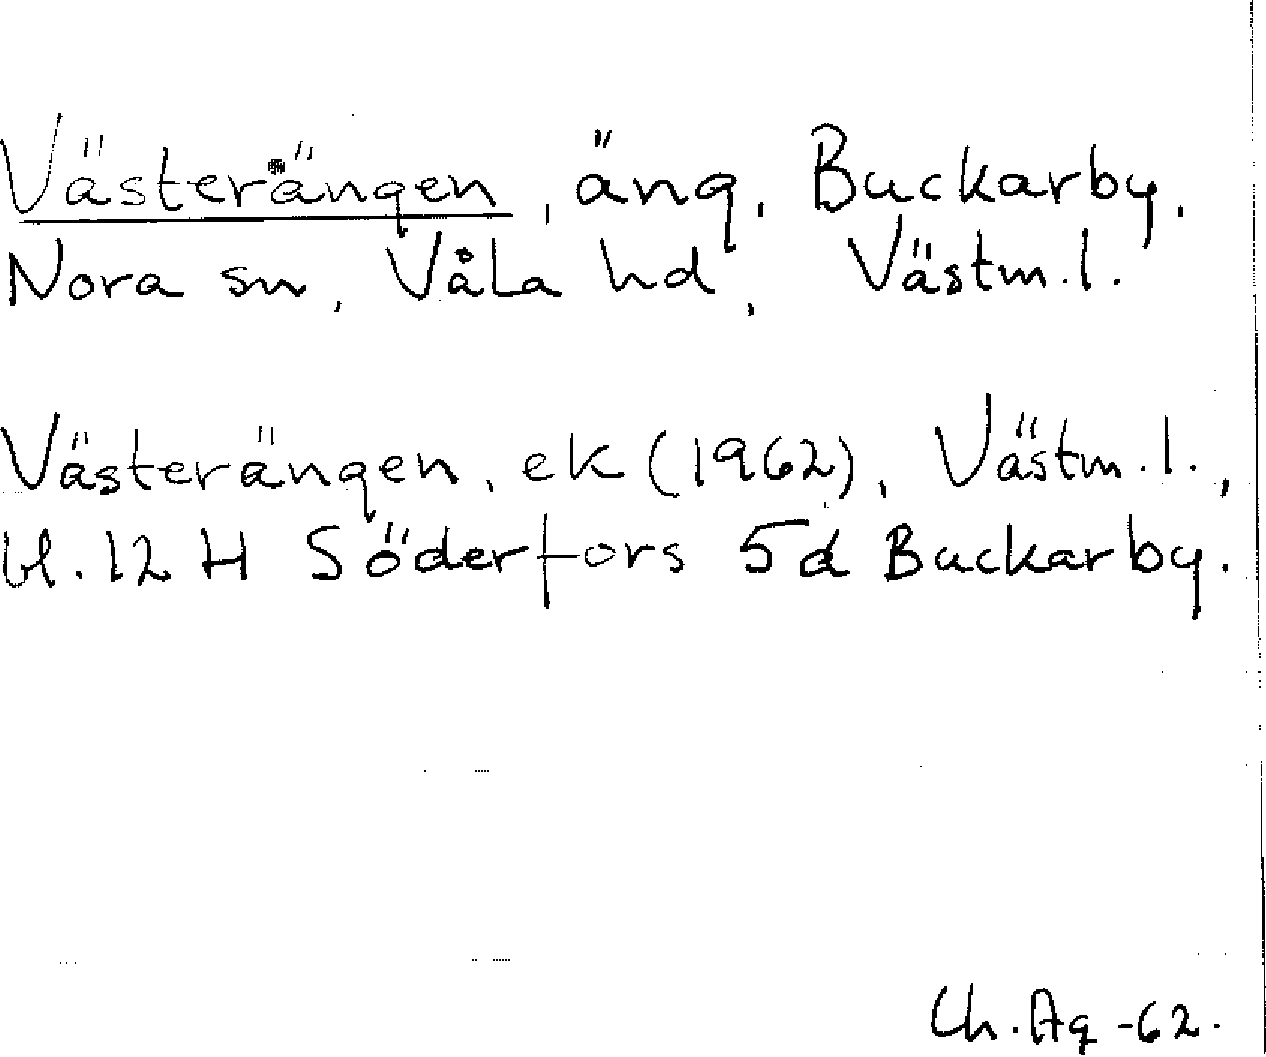 Västerängen, äng, Buckarby,
Nora sn, Våla hd, Västm.l.
Västerängen, ek (1962), Västm.l.,
bl. 12 H Söderfors 5 d Buckarby.
Ch. Ag -62.